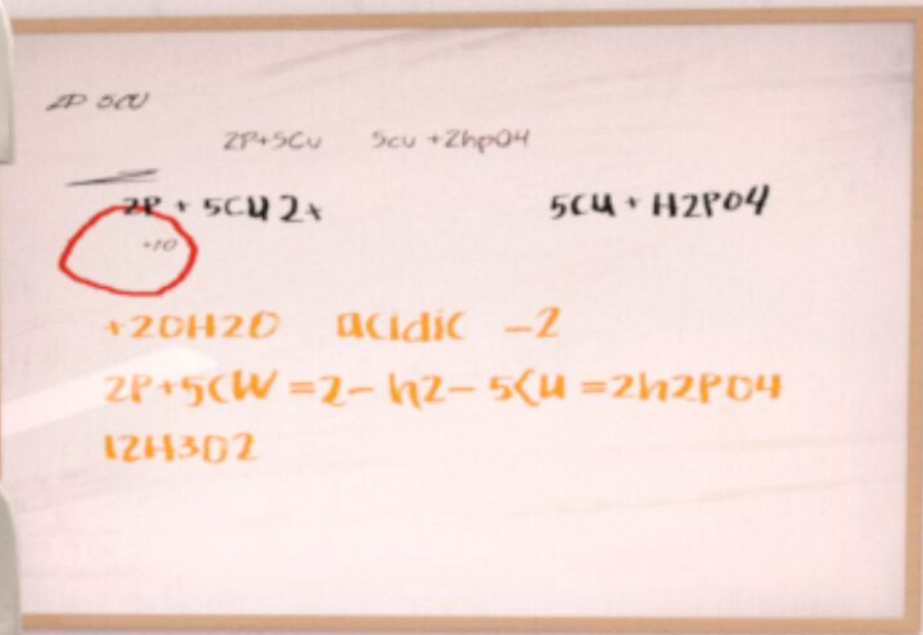 2P 5CU
2P+5Cu 5cu +2hpO4
2P + 5CU 2+ 5CU + H2PO4
+10
+20H2O acidic -2
2P+5CW =2- h2- 5Cu =2h2PO4
12H3O2